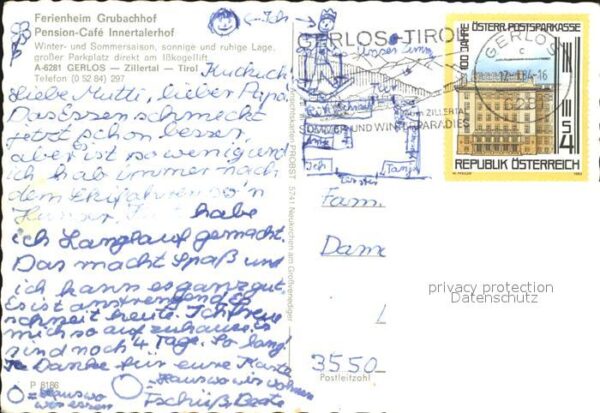 Ferienheim Grubachhof
Pension-Café Innertalerhof
Winter- und Sommersaison, sonnige und ruhige Lage,
großer Parkplatz direkt am Ißkogellift.
A-6281 GERLOS — Zillertal — Tirol
Telefon (0 52 84) 297
Kuckuck
Liebe Mutti, lieber Papa
Das essen schmeckt
jetzt schon besser,
aber ist so wenig und
ich hab immer nach
dem Skifahren so'n
Hunger. habe
ich Langlauf gemacht.
Das macht Spaß und
ich kann es ganz gut.
Es ist anstrengend Es
schneit heute. Ich freue
mich so auf zuhause. Es
sind noch 4 Tage. So lang!
Danke für eure Karte
Haus wo wir wohnen
Haus wo
wir essen
Tschüß Beate
P 8186
PROBST, 5741 Neukirchen am Großvenediger
Ich
GERLOS-TIROL
Unser
Tür
IM ZILLERTAL
SOMMER UND WINTERPARADIES
Ich
Tanja
GERLOS
6281
100 JAHRE ÖSTERR. POSTSPARKASSE
S 4
REPUBLIK ÖSTERREICH
1983
Fam.
Dame
L
3550
Postleitzahl
privacy protection
Datenschutz